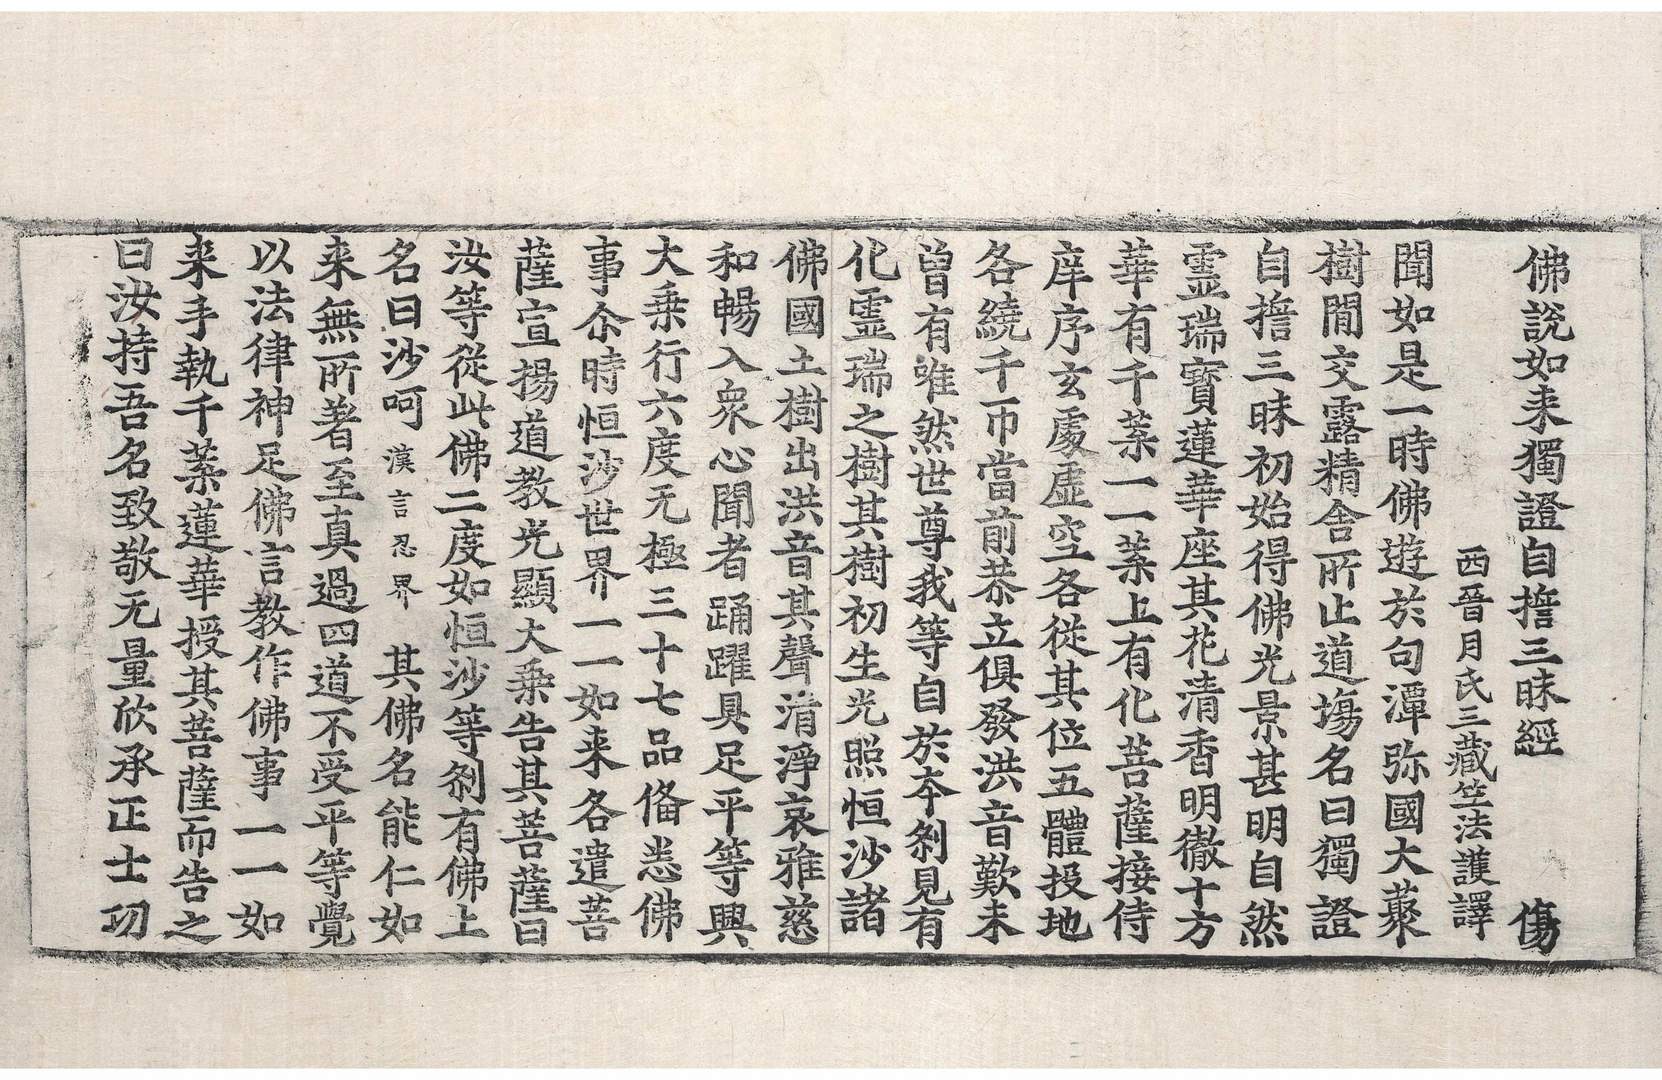 佛說如来獨證自擔三昧經　傷
西晉月氏三藏竺法護譯
聞如是一時佛遊於句潭弥國大藂
樹間交露精舍所止道場名曰獨證
自擔三昧初始得佛光景甚明自然
霊瑞寳蓮華座其花清香明徹十方
華有千葉一一葉上有化菩薩接侍
庠序玄處虛空各從其位五體投地
各繞千帀當前恭立俱發洪音歎未
曽有唯然世尊我等自於夲剎見有
化霊瑞之樹其樹初生光照恒沙諸
佛國土樹出洪音其聲清淨哀雅慈
和暢入衆心聞者踊躍具足平等興
大乗行六度无極三十七品俻悉佛
事尒時恒沙世界一一如来各遣菩
薩宣揚道教光顯大乗告其菩薩曰
汝等從此佛二度如恒沙等剎有佛上
名曰沙呵漢言忍界其佛名能仁如
来無所著至真過四道不受平等覺
以法律神足佛言教作佛事一一如
来手執千葉蓮華授其菩薩而告之
曰汝持吾名致敬无量欣承正士㓛